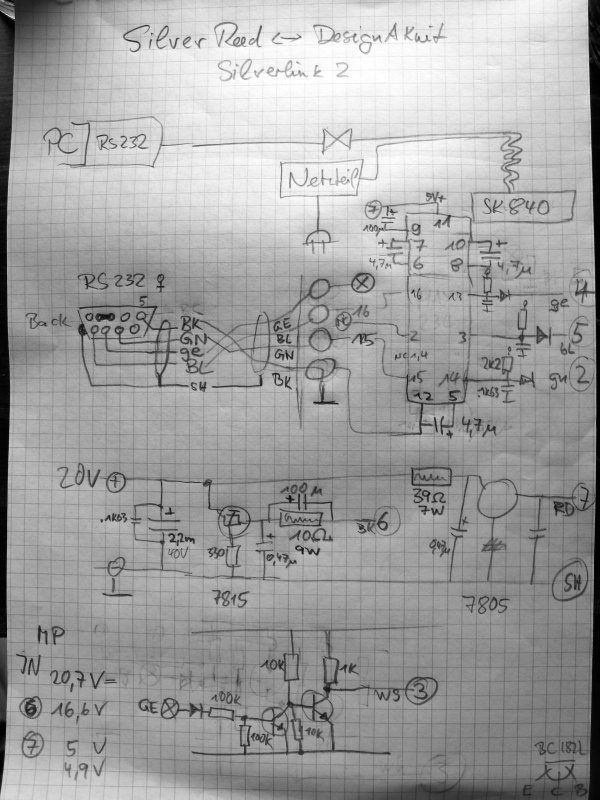 Silver Reed <-> DesignAKnit
Silverlink 2
PC RS232
Netzteil
SK 840
9V+
7
11
100µ
9
7
10
4,7µ
6
8
4,7µ
RS 232 ♀
5
Back
BK
GN
ge
BL
SH
GE
BL
GN
BK
16
15
16
13
2
3
NC 1,4
15
14
12
5
2K2
.1K63
4,7µ
4
ge
5
bL
gn 2
20V +
100µ
39Ω
7W
7
RD
.1K63
2,2m
40V
330
0,47µ
10Ω
9W
BK 6
0,47µ
7815
7805
SH
MP
IN 20,7V=
6 16,6V
7 5 V
4,9V
10K
1K
GE
100K
WS 3
100K
10K
BC 182L
E C B